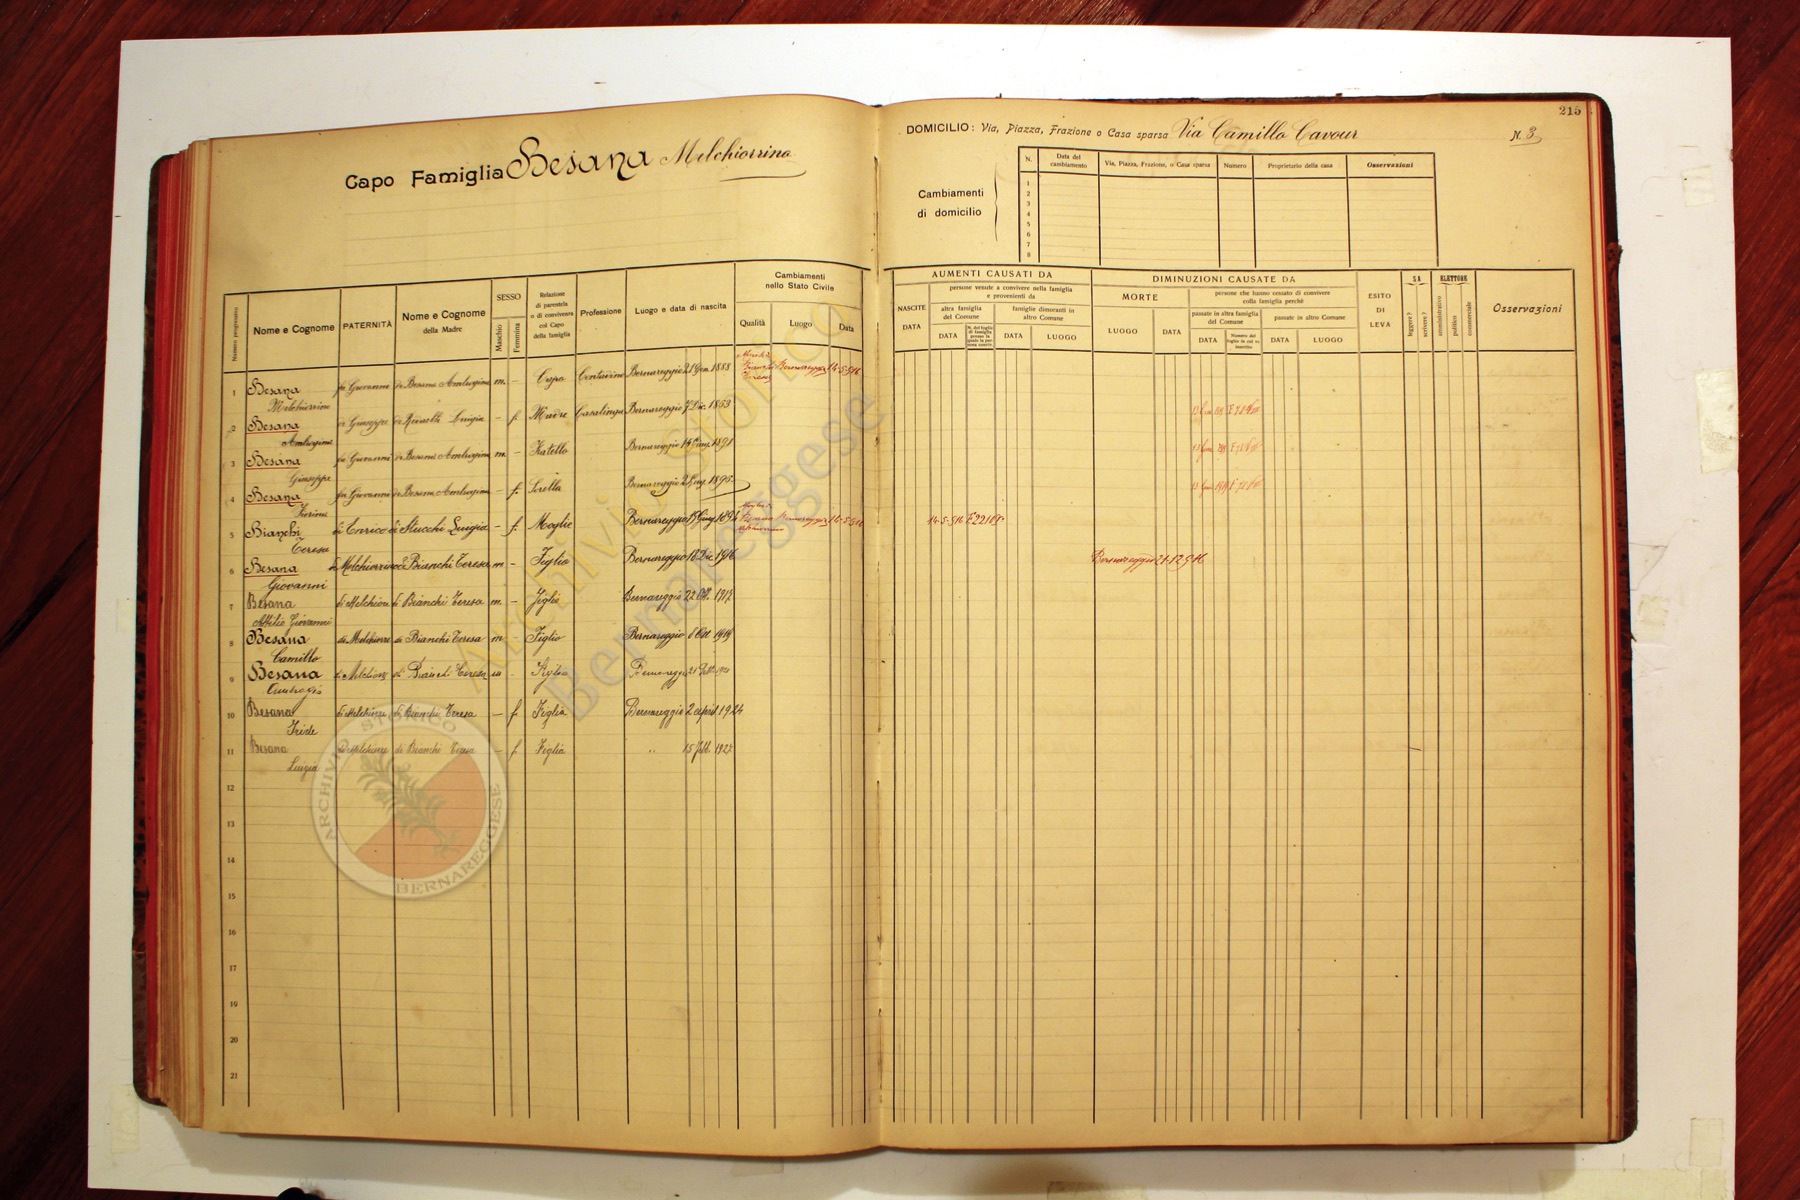 215
Capo Famiglia Besana Melchiorrino
DOMICILIO: Via, Piazza, Frazione o Casa sparsa Via Camillo Cavour N. 3
Cambiamenti
di domicilio
N. Data del cambiamento Via, Piazza, Frazione, o Casa sparsa Numero Proprietario della casa Osservazioni
1
2
3
4
5
6
7
8
Numero progressivo
Nome e Cognome
PATERNITÀ
Nome e Cognome
della Madre
SESSO
Maschio
Femmina
Relazione
di parentela
o di convivenza
col Capo
della famiglia
Professione
Luogo e data di nascita
Cambiamenti
nello Stato Civile
Qualità Luogo Data
AUMENTI CAUSATI DA
NASCITE
DATA
persone venute a convivere nella famiglia
e provenienti da
altra famiglia
del Comune
famiglie dimoranti in
altro Comune
DATA
DATA LUOGO
DIMINUZIONI CAUSATE DA
MORTE
LUOGO DATA
persone che hanno cessato di convivere
colla famiglia perchè
passate in altra famiglia
del Comune
passate in altro Comune
DATA
Numero del
foglio in cui si
inscrive
DATA LUOGO
ESITO
DI
LEVA
SA
leggere?
scrivere?
ELETTORE
amministrativo
politico
commerciale
Osservazioni
1 Besana Melchiorrino fu Giovanni di Besana Ambrogina m. - Capo Contadino Bernareggio 21 Gen. 1888 Bernareggio 14-5-916
2 Besana Ambrogina di Giuseppe di Luigia - f. Madre Casalinga Bernareggio 7 Dic. 1853
3 Besana Giuseppe fu Giovanni di Besana Ambrogina m. - Fratello Bernareggio 1891
4 Besana fu Giovanni di Besana Ambrogina - f. Sorella Bernareggio 1895
5 Bianchi Teresa di Enrico di Stucchi Luigia - f. Moglie Bernareggio 14-5-916 14-5-916
6 Besana Giovanni di Melchiorrino di Bianchi Teresa m - Figlio Bernareggio 18 Dic. 1916 Bernareggio 21-12-916
7 Besana Attilio Giovanni di Melchiorre di Bianchi Teresa m. - Figlio Bernareggio 22 1917
8 Besana Camillo di Melchiorre di Bianchi Teresa m - Figlio Bernareggio 8 Ott. 1919
9 Besana Ambrogio di Melchiorre di Bianchi Teresa m - Figlio Bernareggio 21
10 Besana di Melchiorre di Bianchi Teresa - f. Figlia Bernareggio 2 April 1924
11 Besana Luigia di Melchiorre di Bianchi Teresa - f Figlia " 15 Febb. 1927
12
13
14
15
16
17
18
19
20
21
Archivio Storico
Bernareggese
ARCHIVIO STORICO
BERNAREGGESE